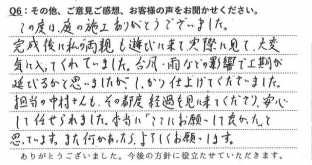 Q6:その他、ご意見ご感想、お客様の声をお聞かせください。
この度は、庭の施工ありがとうございました。
完成後に私の両親も遊びに来て実際に見て、大変
気に入ってくれていました。台風・雨などの影響で工期が
延びるかと思いましたが、しっかり仕上げてくださいました。
担当の中村さんも、その都度経過を見に来てくださり、安心
して任せられました。本当に
てにお願いして良かったと
思っています。また何かあったら、よろしくお願いします。
ありがとうございました。今後の方針に役立たせていただきます。